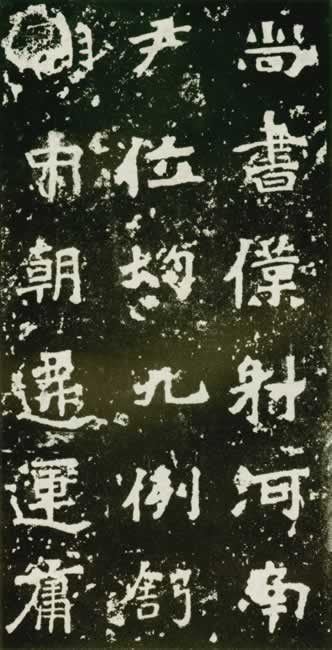 尚書僕射河南
尹位均九例舒
中朝遷運庸